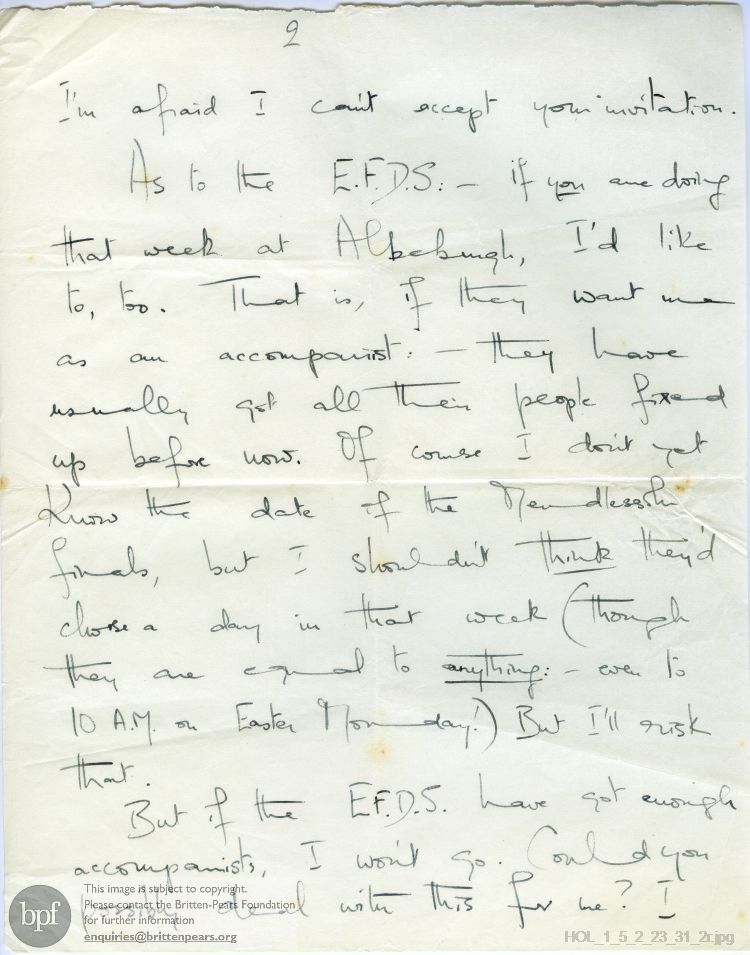 2
I'm afraid I can't accept your invitation.
As to the E.F.D.S: — if you are doing
that week at Aldeburgh, I'd like
to, too. That is, if they want me
as an accompanist: — they have
usually got all their people fixed
up before now. Of course I don't yet
know the date of the Mendlessohn
finals, but I shouldn't think they'd
choose a day in that week (though
they are equal to anything: — even to
10 A.M. on Easter Monday!) But I'll risk
that.
But if the E.F.D.S. have got enough
accompanists, I won't go. Could you
possibly deal with this for me? I
This image is subject to copyright.
Please contact the Britten-Pears Foundation
for further information
enquiries@brittenpears.org
bpf
HOL_1_5_2_23_31_2r.jpg